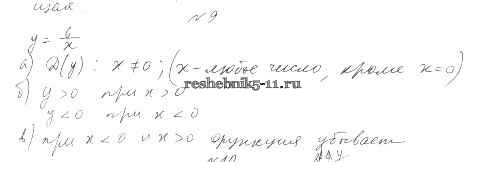 шая.
№9
y = 6/x
а) D(y) : x ≠ 0 ; (x - любое число, кроме x=0)
б) y > 0 при x > 0
reshebnik5-11.ru
y < 0 при x < 0
в) при x < 0 и x > 0 функция убывает
№10